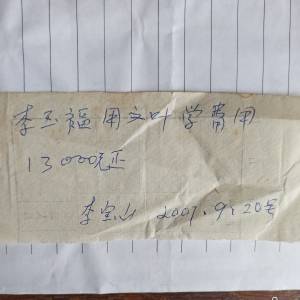 李玉福用文叶学费用
13000元正
李宝山 2007.9.20号